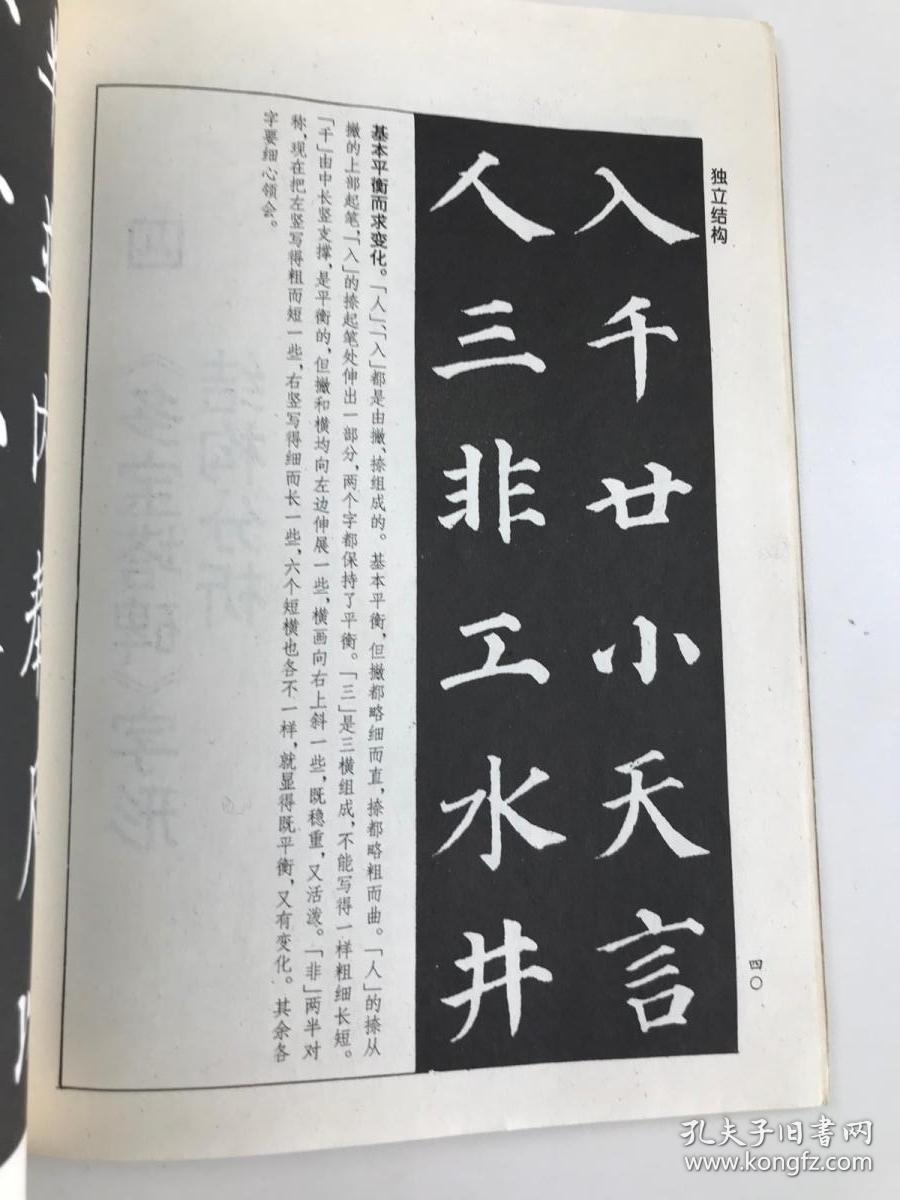 独立结构
入千廿小天言
人三非工水井
基本平衡而求变化。「人」、「入」都是由撇、捺组成的。基本平衡，但撇都略细而直，捺都略粗而曲。「人」的捺从
撇的上部起笔，「入」的捺起笔处伸出一部分，两个字都保持了平衡。「三」是三横组成，不能写得一样粗细长短。
「千」由中长竖支撑，是平衡的，但撇和横均向左边伸展一些，横画向右上斜一些，既稳重，又活泼。「非」两半对
称，现在把左竖写得粗而短一些，右竖写得细而长一些，六个短横也各不一样，就显得既平衡，又有变化。其余各
字要细心领会。
四〇
四
《多宝塔碑》字形
结构分析
孔夫子旧书网
www.kongfz.com